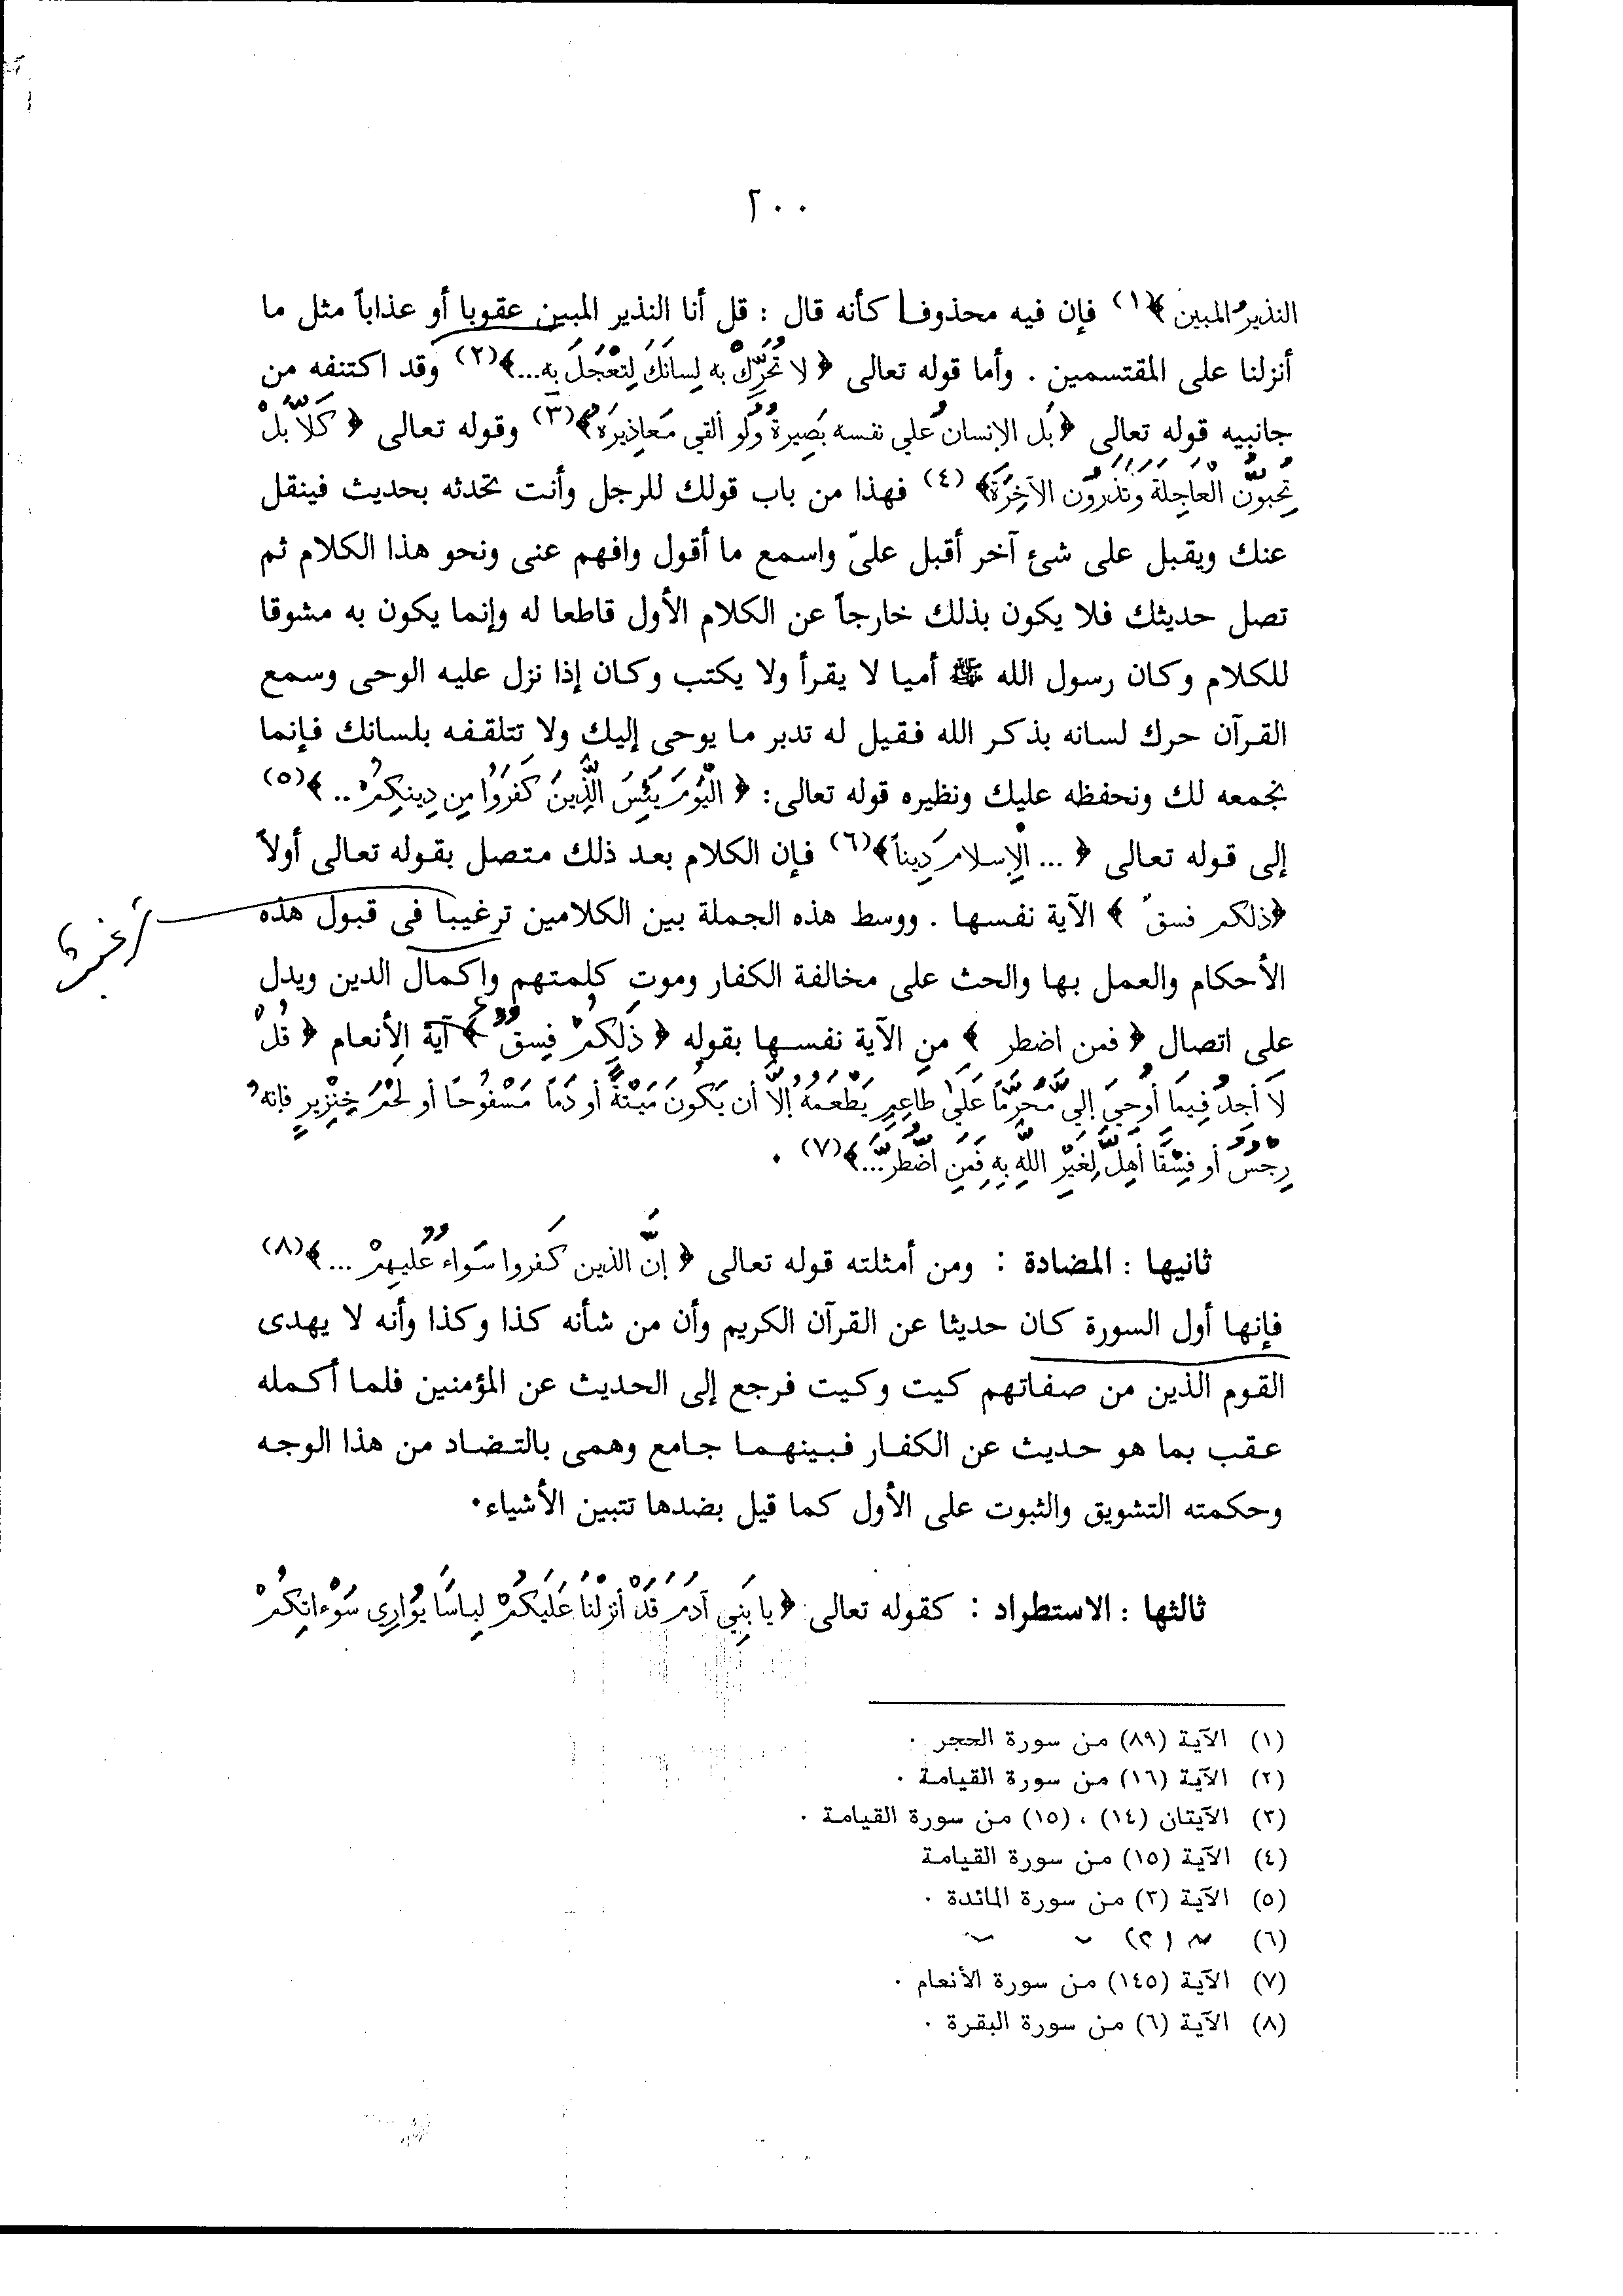 ٢٠٠
النذيرُ المبين ﴾(١) فإن فيه محذوفا كأنه قال : قل أنا النذير المبين عقوبا أو عذاباً مثل ما
أنزلنا على المقتسمين . وأما قوله تعالى ﴿ لا تُحَرِّكْ به لِسانَكَ لِتَعْجَلَ به...﴾(٢) وقد اكتنفه من
جانبيه قوله تعالى ﴿بَل الإنسانُ على نفسه بَصِيرةٌ ولَو ألقى مَعَاذِيرَهُ﴾(٣) وقوله تعالى ﴿ كَلاَّ بَلْ
تُحِبُّونَ الْعَاجِلَةَ وَتَذَرُونَ الآخِرَةَ﴾ (٤) فهذا من باب قولك للرجل وأنت تحدثه بحديث فينقل
عنك ويقبل على شئ آخر أقبل علىّ واسمع ما أقول وافهم عنى ونحو هذا الكلام ثم
تصل حديثك فلا يكون بذلك خارجاً عن الكلام الأول قاطعا له وإنما يكون به مشوقا
للكلام وكان رسول الله ﷺ أميا لا يقرأ ولا يكتب وكان إذا نزل عليه الوحى وسمع
القرآن حرك لسانه بذكر الله فقيل له تدبر ما يوحى إليك ولا تتلقفه بلسانك فإنما
نجمعه لك ونحفظه عليك ونظيره قوله تعالى: ﴿ الْيَوْمَ يَئِسَ الَّذِينَ كَفَرُوا مِن دِينِكُمْ .. ﴾(٥)
إلى قوله تعالى ﴿ ... الإسلامَ دِيناً﴾(٦) فإن الكلام بعد ذلك متصل بقوله تعالى أولاً
﴿ذلكم فسقٌ ﴾ الآية نفسها . ووسط هذه الجملة بين الكلامين ترغيبا فى قبول هذه
الأحكام والعمل بها والحث على مخالفة الكفار وموت كلمتهم واكمال الدين ويدل
على اتصال ﴿ فمن اضطر ﴾ من الآية نفسها بقوله ﴿ ذَلِكُمْ فِسقٌ ﴾ آية الأنعام ﴿ قُلْ
لاَ أَجِدُ فِيمَا أُوحِيَ إليَّ مُحَرَّمًا عَلَى طَاعِمٍ يَطْعَمُهُ إلَّا أن يَكُونَ مَيْتَةً أو دَمًا مَسْفُوحًا أو لَحْمَ خِنْزِيرٍ فإنه
رِجْسٌ أو فِسْقًا أُهِلَّ لِغَيْرِ اللَّهِ بِهِ فَمَنِ اضْطُرَّ...﴾(٧) .
ثانيها : المضادة : ومن أمثلته قوله تعالى ﴿ إنَّ الذين كَفروا سَواءٌ عليهِمْ ...﴾(٨)
فإنها أول السورة كان حديثا عن القرآن الكريم وأن من شأنه كذا وكذا وأنه لا يهدى
القوم الذين من صفاتهم كيت وكيت فرجع إلى الحديث عن المؤمنين فلما أكمله
عقب بما هو حديث عن الكفار فبينهما جامع وهمى بالتضاد من هذا الوجه
وحكمته التشويق والثبوت على الأول كما قيل بضدها تتبين الأشياء.
ثالثها : الاستطراد : كقوله تعالى ﴿يا بَنِي آدَمَ قَدْ أنزَلْنَا عَلَيكُمْ لِباسًا يُوَارِي سَوْءاتِكُمْ
(١) الآية (٨٩) من سورة الحجر .
(٢) الآية (١٦) من سورة القيامة .
(٣) الآيتان (١٤) ، (١٥) من سورة القيامة .
(٤) الآية (١٥) من سورة القيامة
(٥) الآية (٣) من سورة المائدة .
(٦) 〃 (٣) 〃 〃
(٧) الآية (١٤٥) من سورة الأنعام .
(٨) الآية (٦) من سورة البقرة .